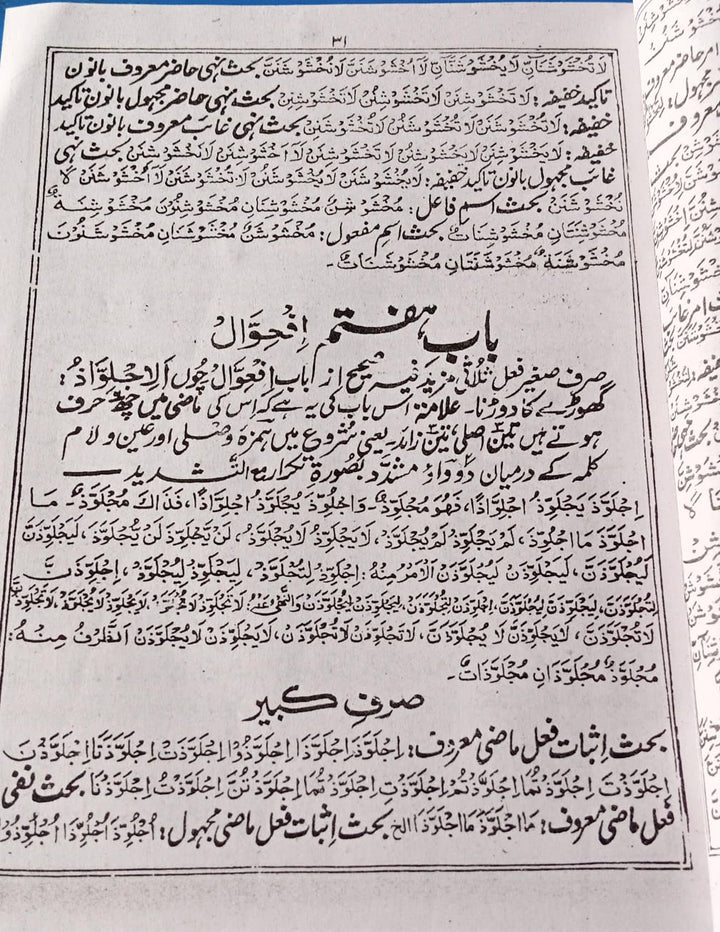 ۳۱
لَا تُخْشَوْشَنَانِّ لَا يُخْشَوْشَنَّانِّ لَا اُخْشَوْشَنَنَّ لَا نُخْشَوْشَنَنَّ بحث نہی حاضر معروف بانون
تاکید خفیفہ: لَا تَخْشَوْشِنَنْ لَا تَخْشَوْشِنُنْ لَا تَخْشَوْشِنِنْ بحث نہی حاضر مجہول بانون تاکید
خفیفہ: لَا تُخْشَوْشَنَنْ لَا تُخْشَوْشَنُنْ لَا تُخْشَوْشَنِنْ بحث نہی غائب معروف بانون تاکید
خفیفہ: لَا يَخْشَوْشِنَنْ لَا يَخْشَوْشِنُنْ لَا تَخْشَوْشِنَنْ لَا اَخْشَوْشِنَنْ لَا نَخْشَوْشِنَنْ بحث نہی
غائب مجہول بانون تاکید خفیفہ: لَا يُخْشَوْشَنَنْ لَا يُخْشَوْشَنُنْ لَا تُخْشَوْشَنَنْ لَا اُخْشَوْشَنَنْ لَا
نُخْشَوْشَنَنْ بحث اسم فاعل: مُخْشَوْشِنٌ مُخْشَوْشِنَانِ مُخْشَوْشِنُوْنَ مُخْشَوْشِنَةٌ
مُخْشَوْشِنَتَانِ مُخْشَوْشِنَاتٌ بحث اسم مفعول: مُخْشَوْشَنٌ مُخْشَوْشَنَانِ مُخْشَوْشَنُوْنَ
مُخْشَوْشَنَةٌ مُخْشَوْشَنَتَانِ مُخْشَوْشَنَاتٌ۔
باب ہفتم اِفْعِوَّالْ
صرف صغیر فعل ثلاثی مزید فیہ صحیح از باب اِفْعِوَّالْ چوں اَلْاِجْلِوَّاذُ:
گھوڑے کا دوڑنا۔ علامۃ اس باب کی یہ ہے کہ اس کی ماضی میں چھ حرف
ہوتے ہیں تین اصلی، تین زائد۔ یعنی شروع میں ہمزہ وصلی اور عین و لام
کلمہ کے درمیان دُو واؤ مشدّد بصُورۃ تکرار مع التّشدید۔
اِجْلَوَّذَ يَجْلَوِّذُ اِجْلِوَّاذًا، فَهُوَ مُجْلَوِّذٌ۔ وَاُجْلُوِّذَ يُجْلَوَّذُ اِجْلِوَّاذًا، فَذَاكَ مُجْلَوَّذٌ۔ مَا
اجْلَوَّذَ مَا اجْلُوِّذَ، لَمْ يَجْلَوِّذْ لَمْ يُجْلَوَّذْ، لَا يَجْلَوِّذُ لَا يُجْلَوَّذُ، لَنْ يَّجْلَوِّذَ لَنْ يُّجْلَوَّذَ، لَيَجْلَوِّذَنَّ
لَيُجْلَوَّذَنَّ، لَيَجْلَوِّذَنْ لَيُجْلَوَّذَنْ اَلْاَمْرُ مِنْهُ: اِجْلَوِّذْ لِتُجْلَوَّذْ، لِيَجْلَوِّذْ لِيُجْلَوَّذْ، اِجْلَوِّذَنَّ
لِتُجْلَوَّذَنَّ، لِيَجْلَوِّذَنَّ لِيُجْلَوَّذَنَّ، اِجْلَوِّذَنْ لِتُجْلَوَّذَنْ، لِيَجْلَوِّذَنْ لِيُجْلَوَّذَنْ وَالنَّهْىُ عَنْهُ: لَا تَجْلَوِّذْ لَا تُجْلَوَّذْ، لَا يَجْلَوِّذْ لَا يُجْلَوَّذْ، لَا تَجْلَوِّذَنَّ
لَا تُجْلَوَّذَنَّ، لَا يَجْلَوِّذَنَّ لَا يُجْلَوَّذَنَّ، لَا تَجْلَوِّذَنْ لَا تُجْلَوَّذَنْ، لَا يَجْلَوِّذَنْ لَا يُجْلَوَّذَنْ اَلظَّرْفُ مِنْهُ:
مُجْلَوَّذٌ مُجْلَوَّذَانِ مُجْلَوَّذَاتٌ۔
صرفِ کبیر
بحث اثبات فعل ماضی معروف: اِجْلَوَّذَ اِجْلَوَّذَا اِجْلَوَّذُوْا اِجْلَوَّذَتْ اِجْلَوَّذَتَا اِجْلَوَّذْنَ
اِجْلَوَّذْتَ اِجْلَوَّذْتُمَا اِجْلَوَّذْتُمْ اِجْلَوَّذْتِ اِجْلَوَّذْتُمَا اِجْلَوَّذْتُنَّ اِجْلَوَّذْتُ اِجْلَوَّذْنَا بحث نفی
فعل ماضی معروف: مَا اجْلَوَّذَ مَا اجْلَوَّذَا الخ بحث اثبات فعل ماضی مجہول: اُجْلُوِّذَ اُجْلُوِّذَا اُجْلُوِّذُوْا